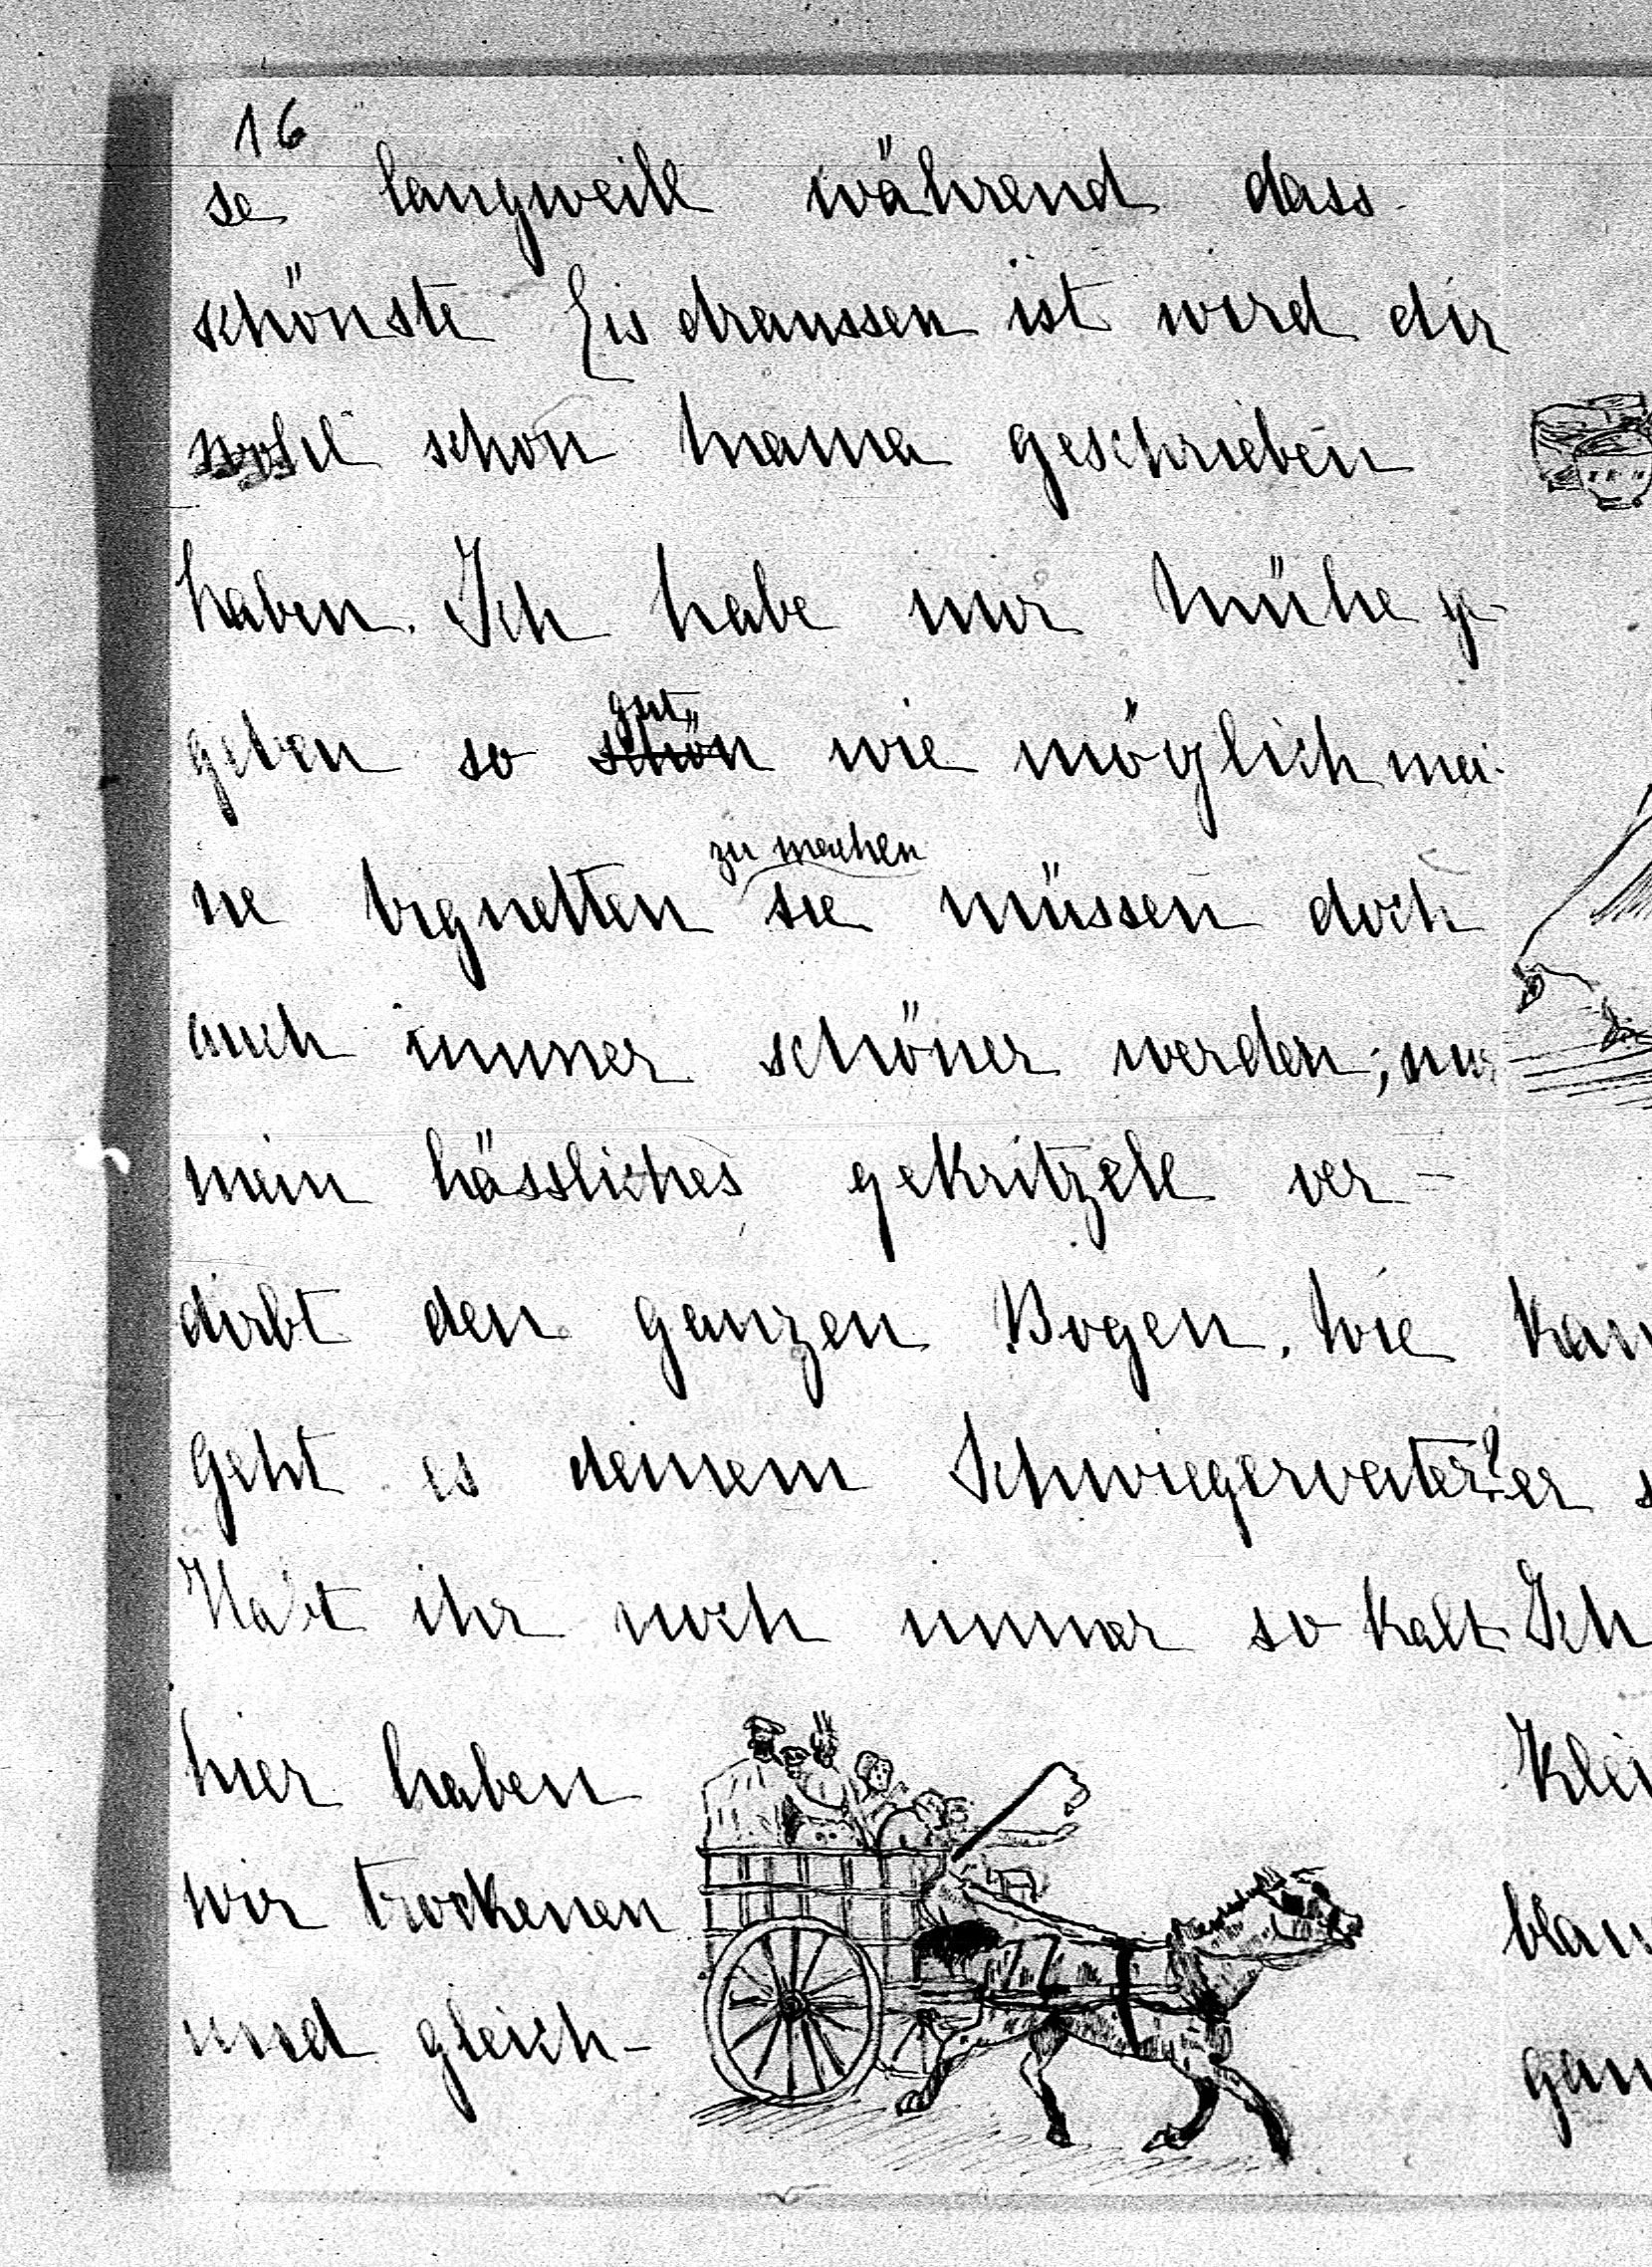 16
se langweile während dass
schönste Eis draussen ist wird dir
wohl schon Mama geschrieben
haben. Ich habe mir Mühe ge-
gut
geben so schön wie möglich mei-
zu machen
ne Vignetten sie müssen doch
auch immer schöner werden; nur
mein hässliches gekritzele ver-
dirbt den ganzen Bogen. Wie
geht es deinem Schwiegervater?
Habt ihr noch immer so kalt
hier haben
wir trockenen
und gleich-
kan
er s
Ich
Klei
blau
gan